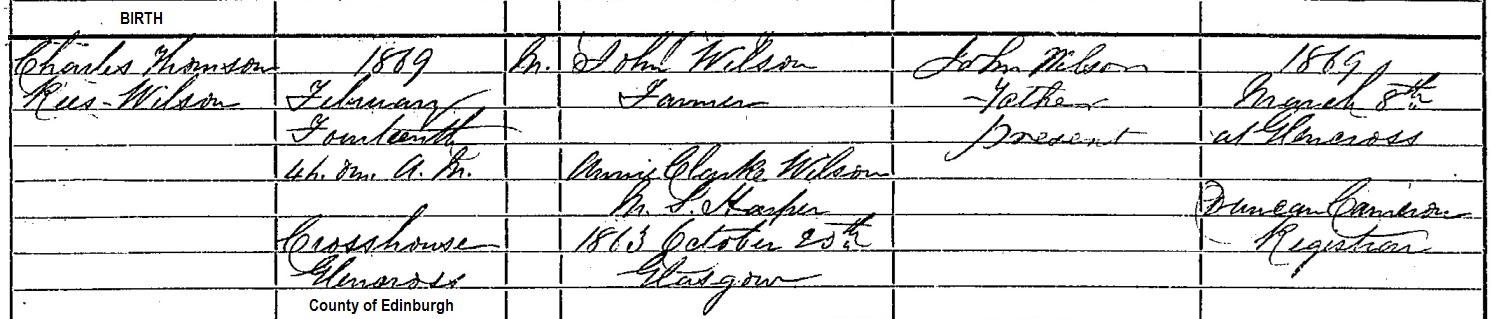 BIRTH
Charles Thomson
Rees-Wilson
1869
February
Fourteenth
4h. 0m. A. M.
Crosshouse
Glencross
County of Edinburgh
M.
John Wilson
Farmer
Annie Clarke Wilson
M. S. Harper
1863 October 25th
Glasgow
John Wilson
Father
present
1869
March 8th
at Glencross
Duncan Cameron
Registrar